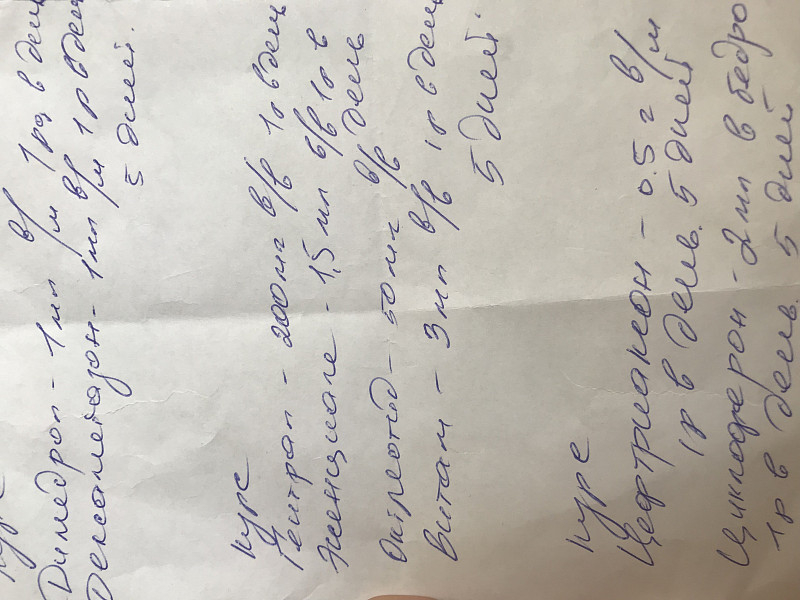 Курс
Димедрол - 1 мл в/м 1 раз в день
Дексаметазон - 1 мл в/м 1 р в день
5 дней.
Курс
- 200 мг в/в 1 р в день
- 1,5 мл в/в 1 р в
день
- 50 мл в/в
Витам - 3 мл в/в 1 р в день
5 дней.
Курс
Цефтриаксон - 0.5 г в/м
1 р в день. 5 дней
Циклоферон - 2 мл в бедро
1 р в день. 5 дней